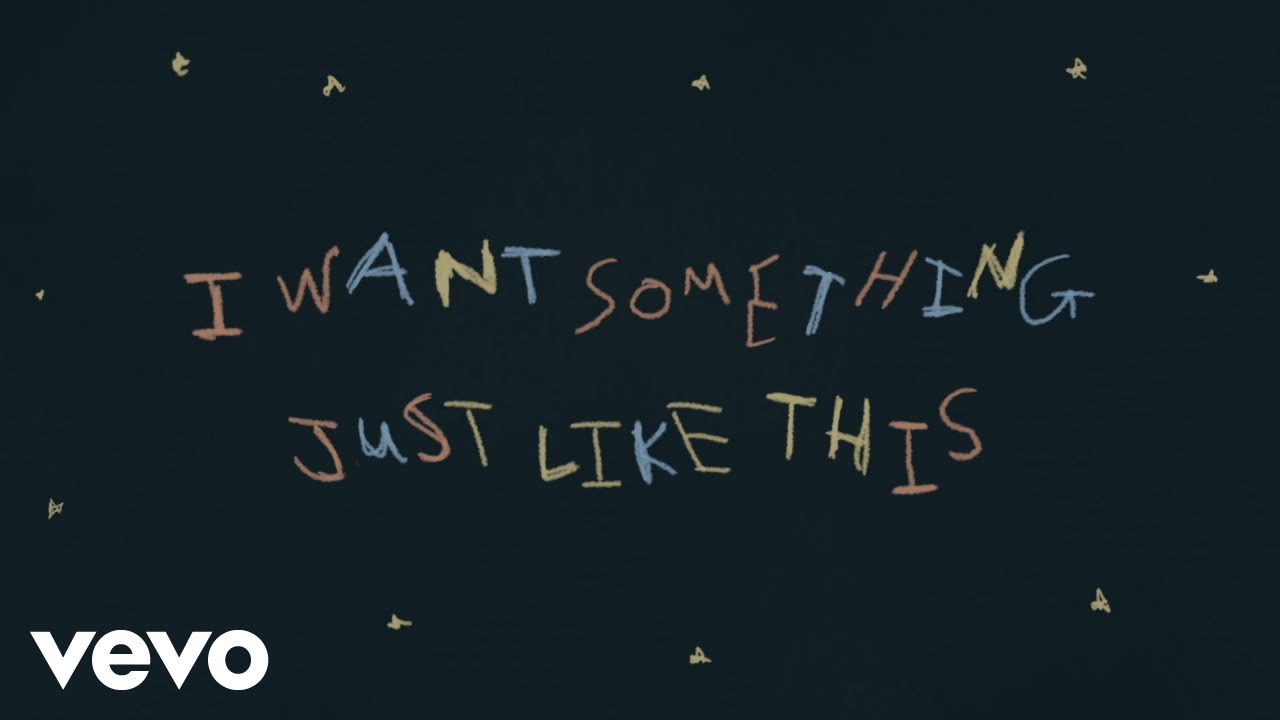 I WANT SOMETHING
JUST LIKE THIS
vevo